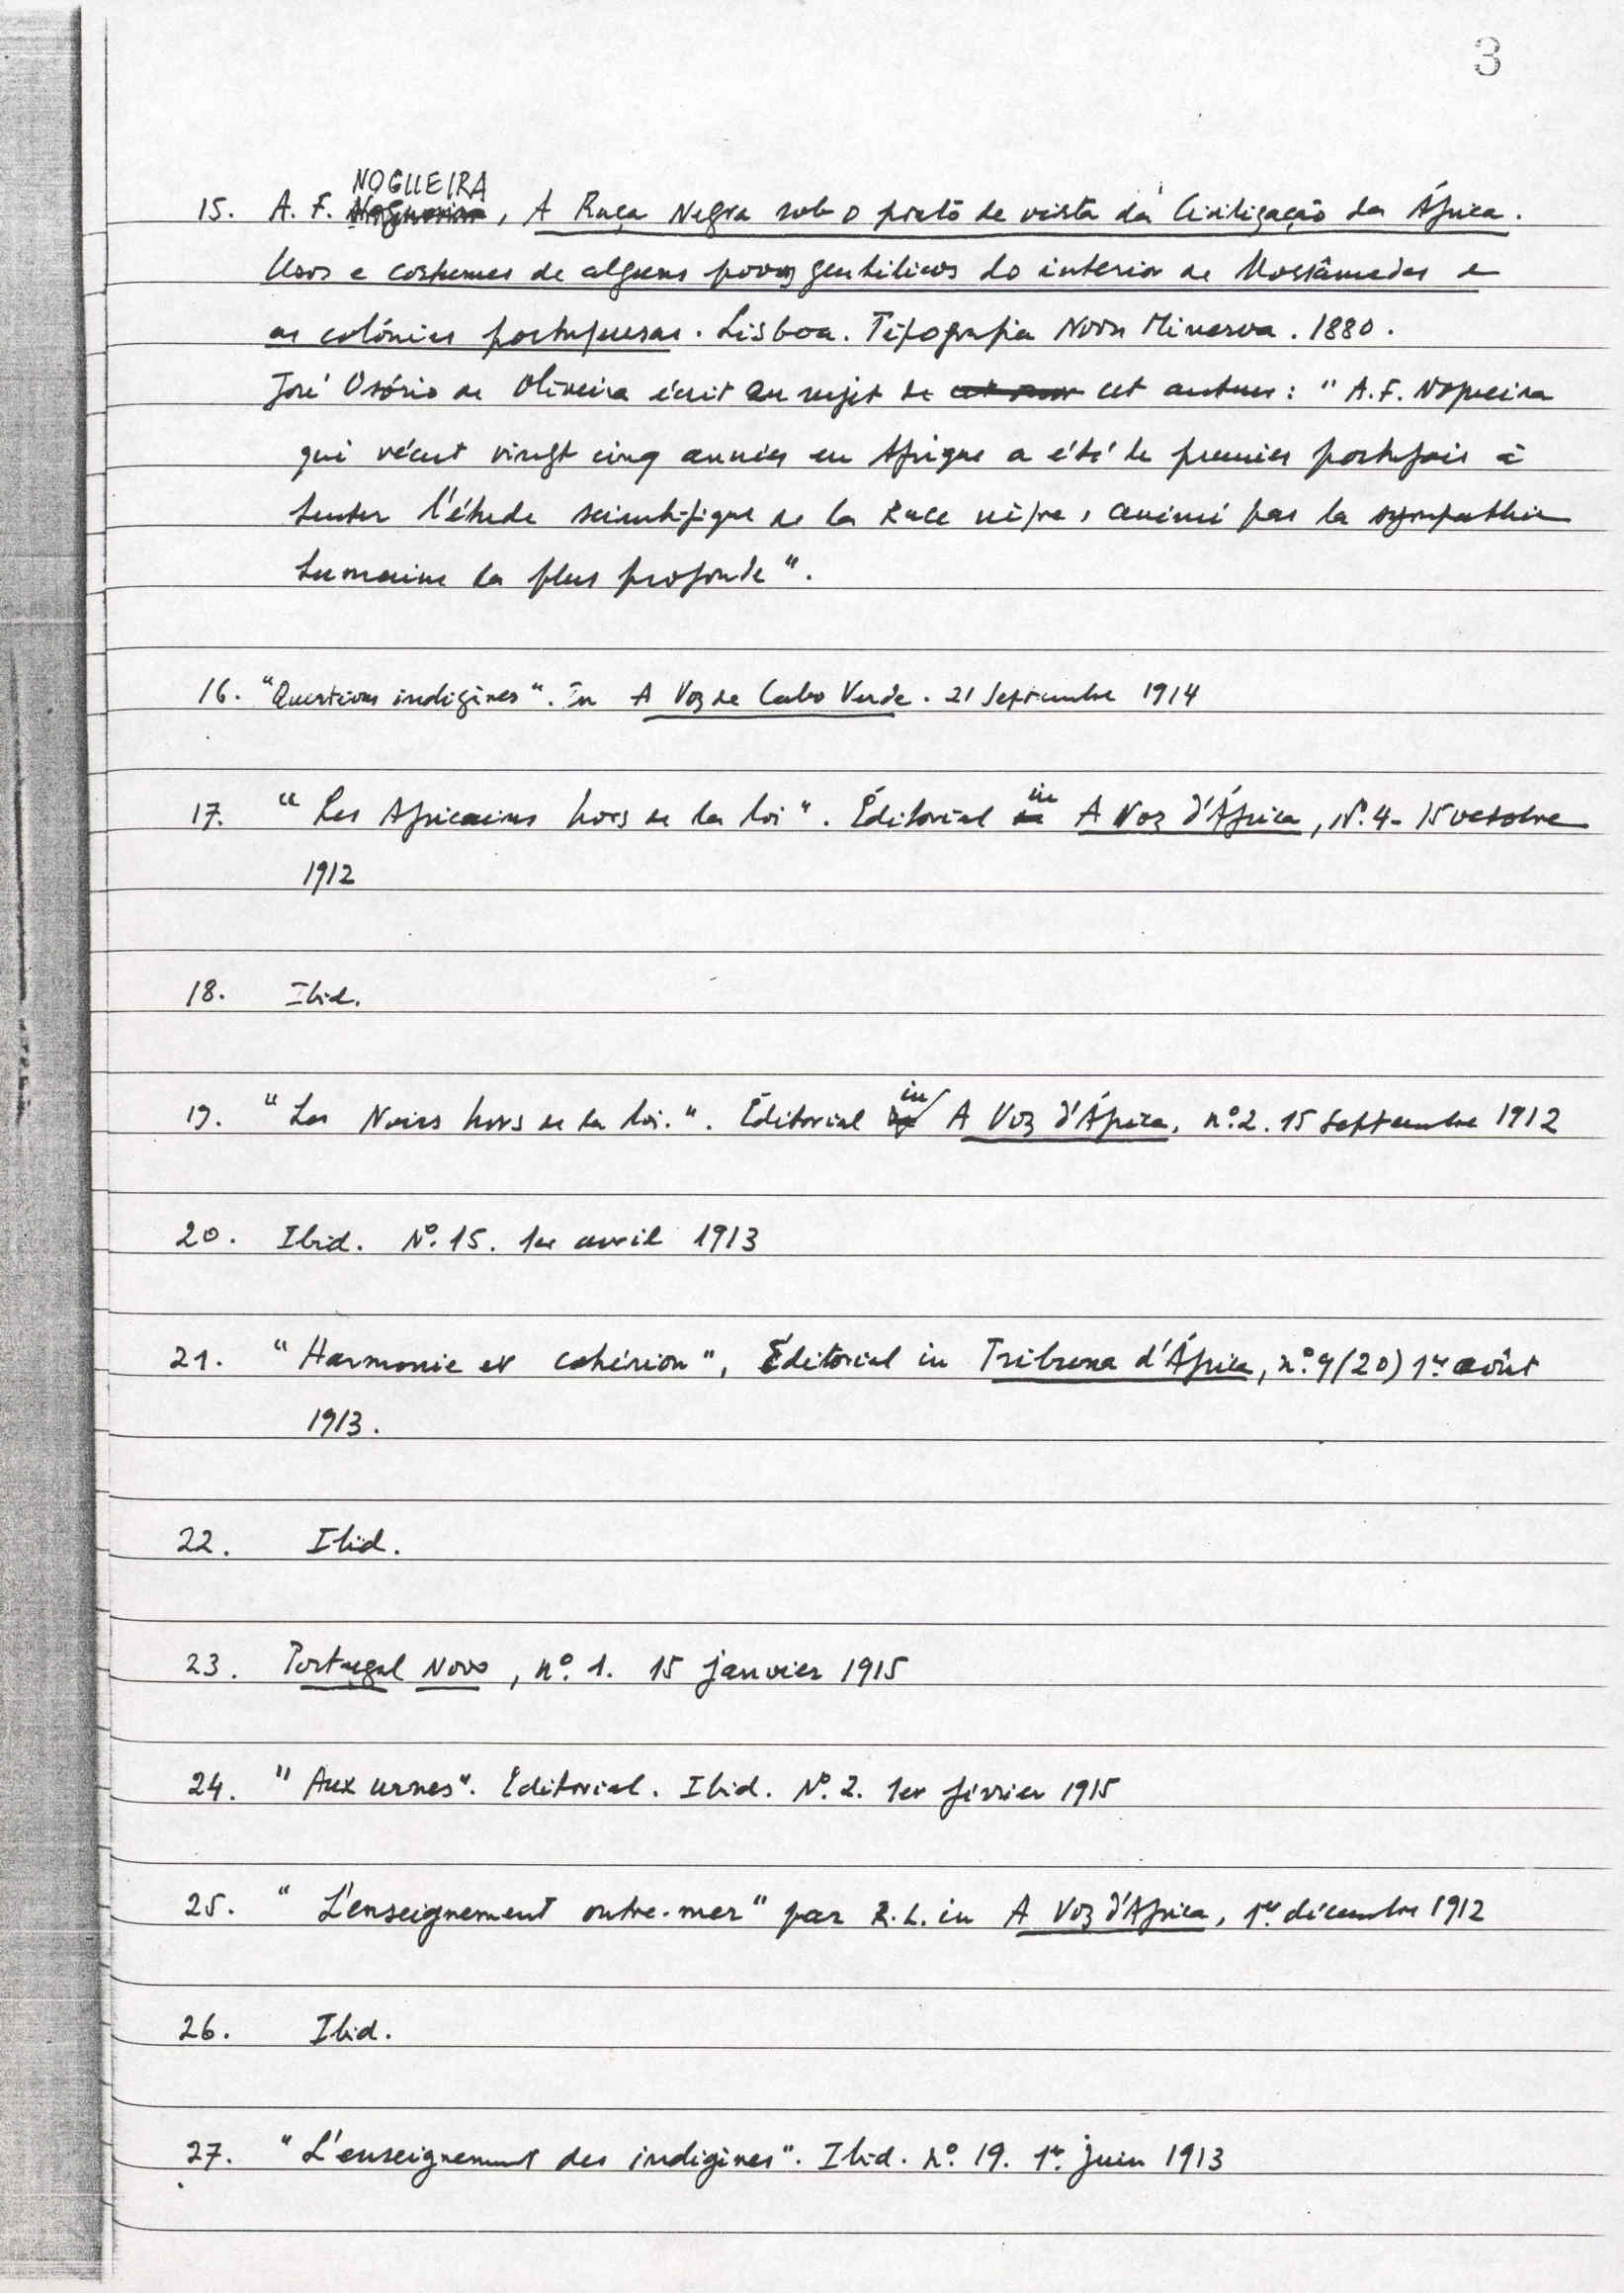 3
NOGUEIRA
15. A. F. Nogueira, A Raça Negra sob o ponto de vista da Civilização da África.
Usos e costumes de alguns povos gentilicos do interior de Mossâmedes e
as colónias portuguesas. Lisboa. Tipografia Nova Minerva. 1880.
José Osório de Oliveira écrit au sujet de cet auteur: "A.F. Nogueira
qui vécut vingt cinq années en Afrique a été le premier portugais à
tenter l'étude scientifique de la Race nègre, animé par la sympathie
humaine la plus profonde".
16. "Questions indigènes". In A Voz de Cabo Verde. 21 Septembre 1914
17. "Les Africains hors de la loi". Éditorial in A Voz d'África, Nº.4- 15 octobre
1912
18. Ibid.
19. "Les Noirs hors de la loi.". Éditorial in A Voz d'África, nº.2. 15 Septembre 1912
20. Ibid. Nº.15. 1er avril 1913
21. "Harmonie et cohésion", Éditorial in Tribuna d'África, nº.9(20) 1er août
1913.
22. Ibid.
23. Portugal Novo, nº.1. 15 janvier 1915
24. "Aux urnes". Éditorial. Ibid. Nº.2. 1er février 1915
25. "L'enseignement outre-mer" par R.L. in A Voz d'Africa, 1er décembre 1912
26. Ibid.
27. "L'enseignement des indigènes". Ibid. nº.19. 1er juin 1913